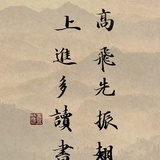 高飛先振翅
上進多讀書